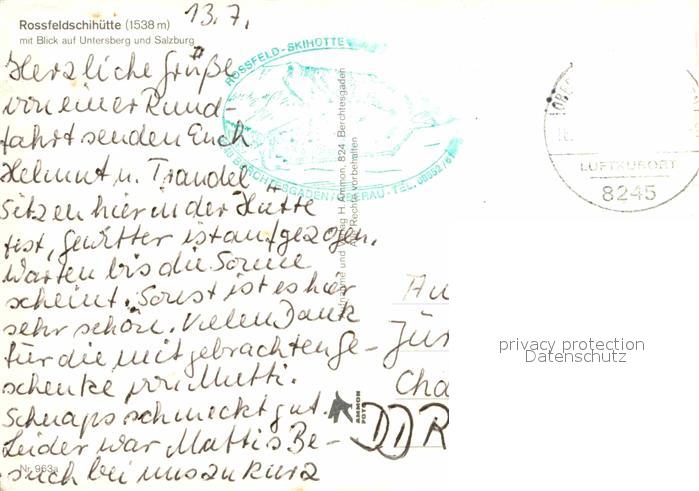 13.7.
Rossfeldschihütte (1538 m)
mit Blick auf Untersberg und Salzburg
Herzliche Grüße
von einer Rund-
fahrt senden Euch
Helmut u. Traudel
Sitzen hier in der Hütte
fest, Gewitter ist aufgezogen.
Warten bis die Sonne
scheint. Sonst ist es hier
sehr schön. Vielen Dank
für die mitgebrachten Ge-
schenke von Mutti.
Schnaps schmeckt gut.
Leider war Muttis Be-
such bei uns zu kurz
Nr. 963a
ROSSFELD-SKIHÜTTE
BERCHTESGADEN
TEL.
Verlag H. Ammon, 824 Berchtesgaden
Alle Rechte vorbehalten
AMMON
FOTO
LUFTKURORT
8245
DDR
privacy protection
Datenschutz